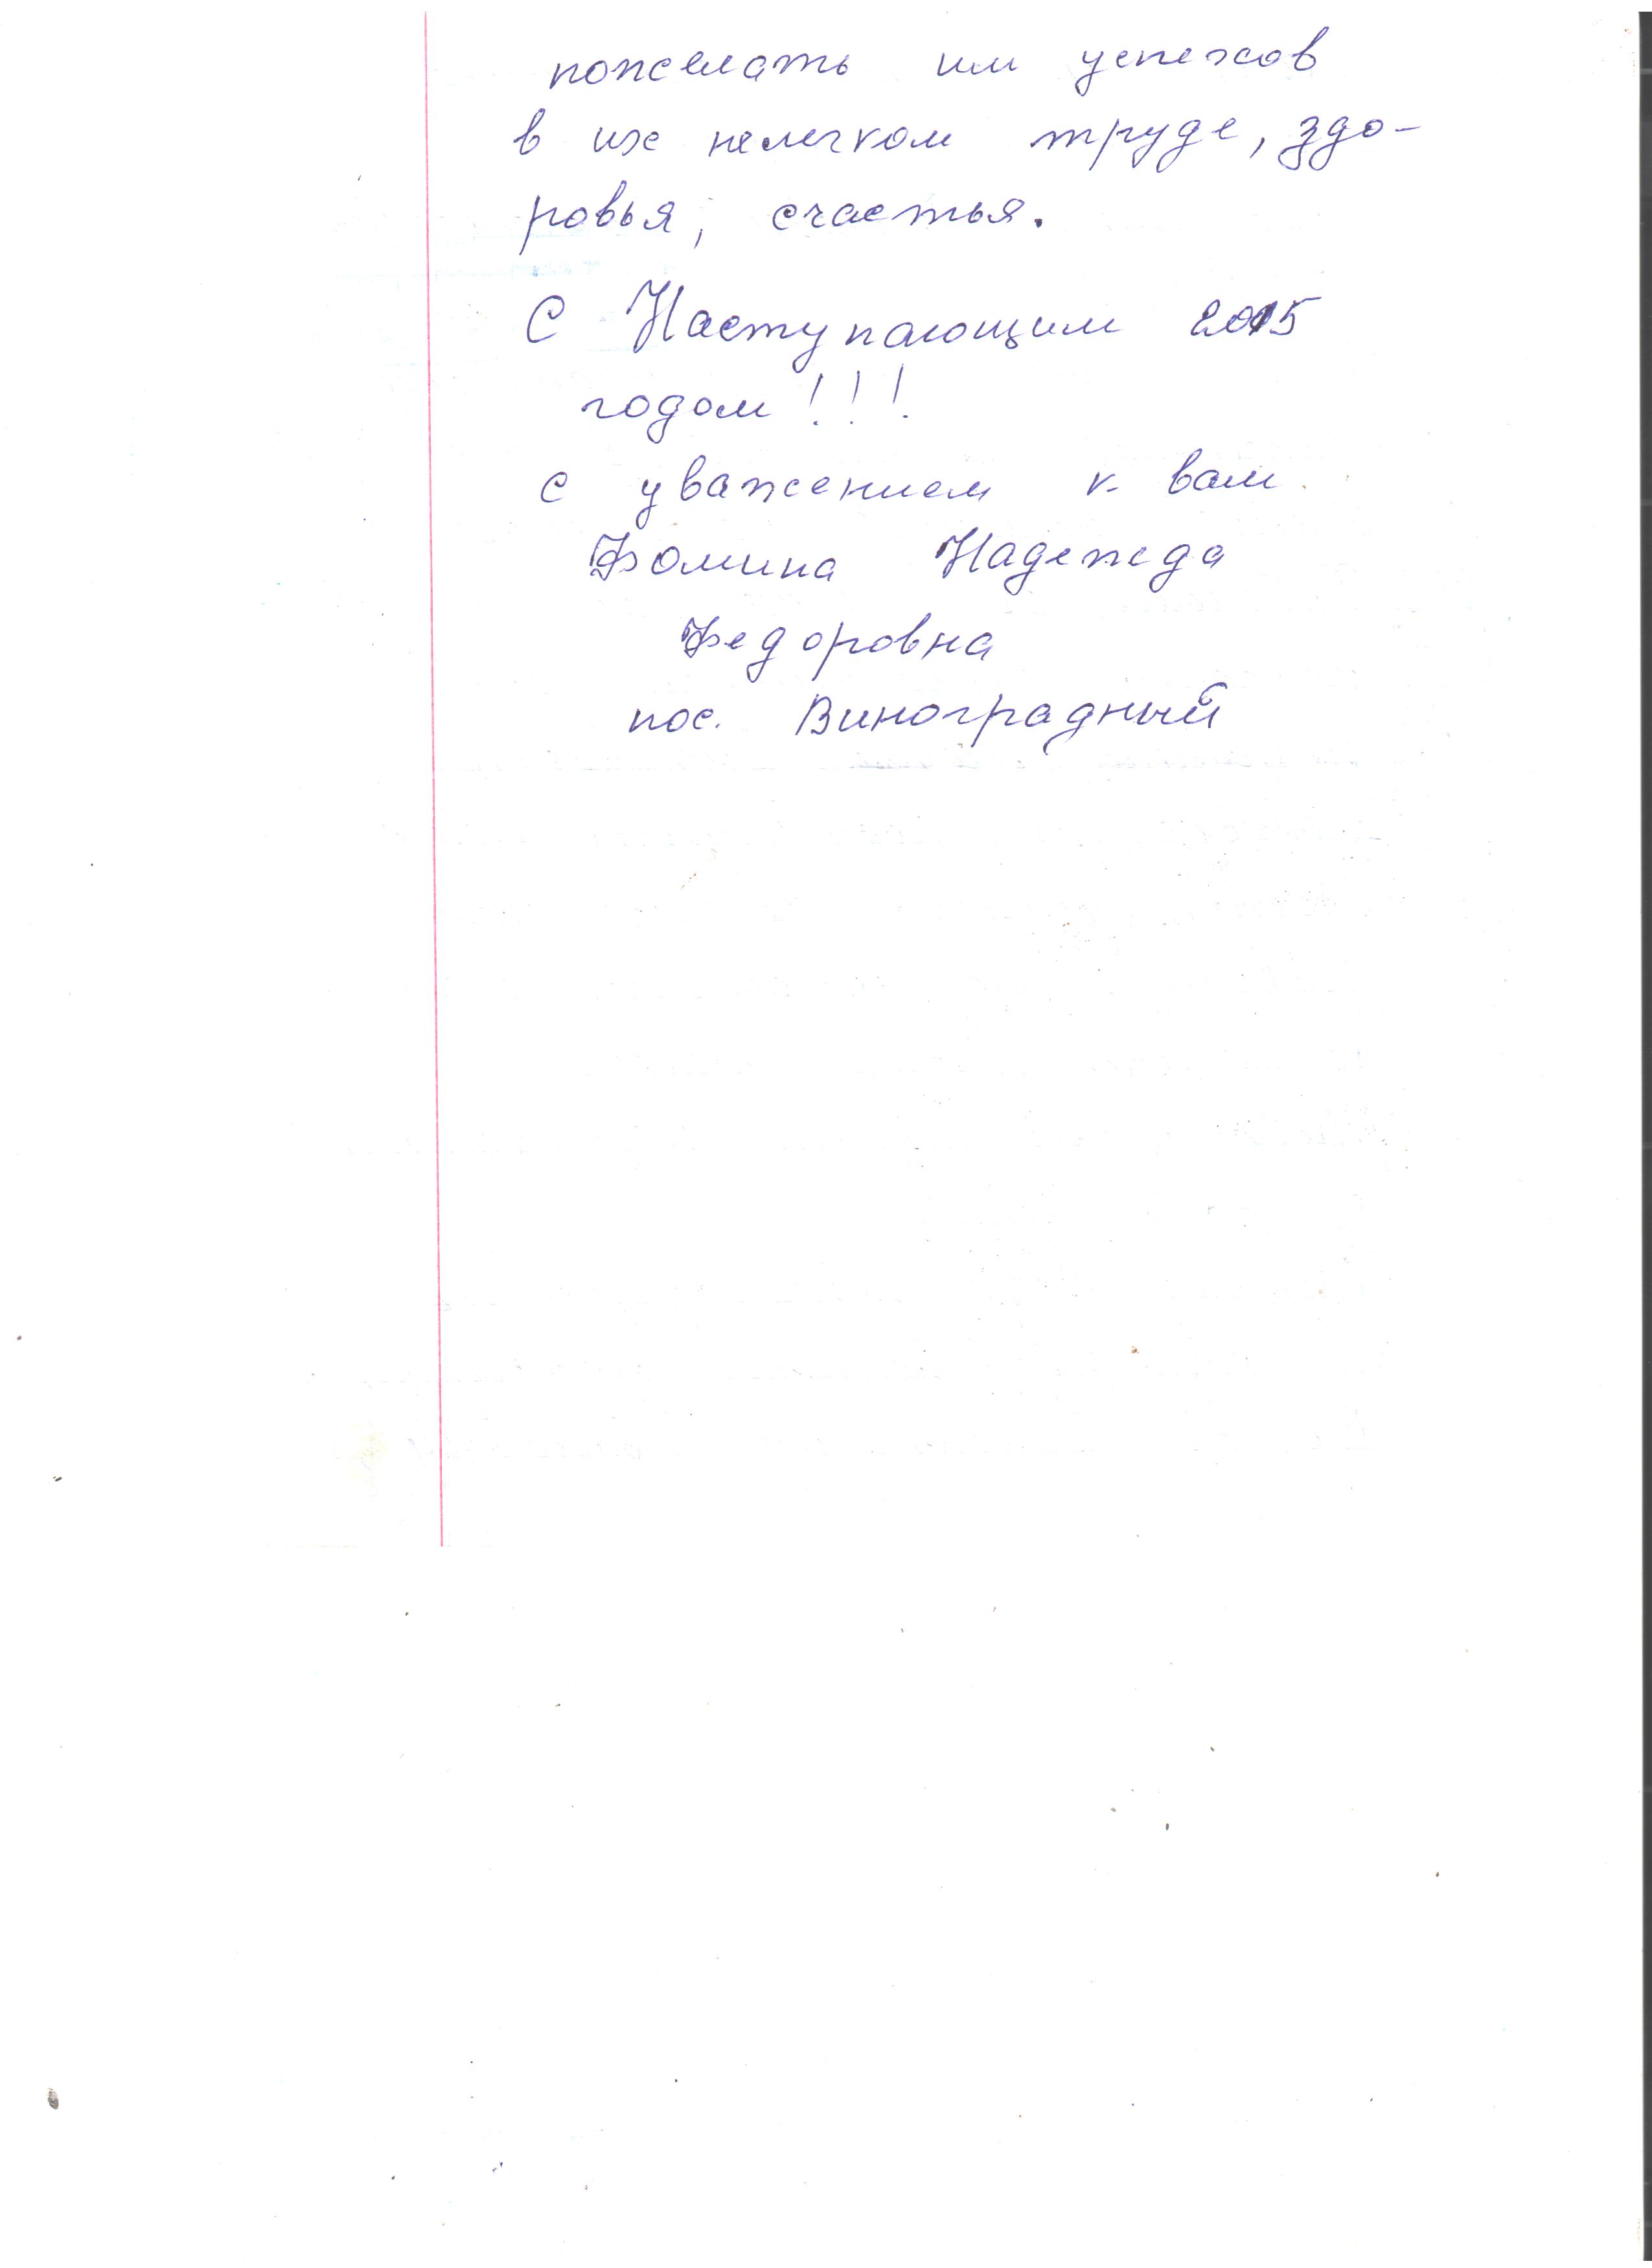 пожелать им успехов
в их нелегком труде, здо-
ровья, счастья.
С Наступающим 2015
годом!!!
с уважением к вам
Фомина Надежда
Федоровна
пос. Виноградный